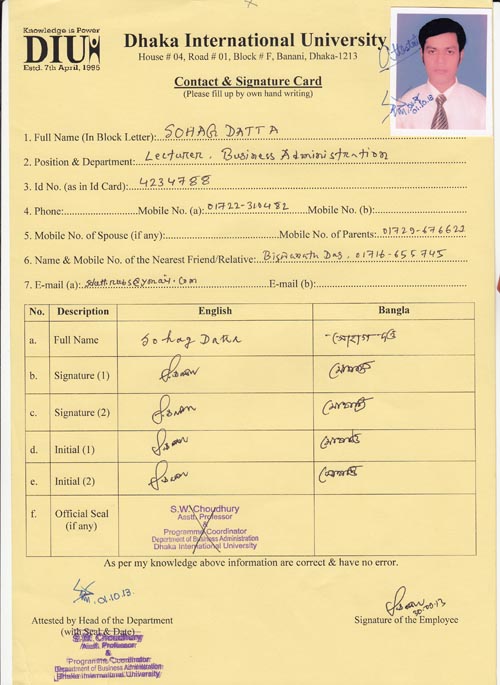 Knowledge is Power
DIU
Estd. 7th April, 1995
Dhaka International University
House # 04, Road # 01, Block # F, Banani, Dhaka-1213
Contact & Signature Card
(Please fill up by own hand writing)
Attested
01.10.13
1. Full Name (In Block Letter): SOHAG DATTA
2. Position & Department: Lecturer. Business Administration
3. Id No. (as in Id Card): 4234788
4. Phone: Mobile No. (a): 01722-310482 Mobile No. (b):
5. Mobile No. of Spouse (if any): Mobile No. of Parents: 01729-676622
6. Name & Mobile No. of the Nearest Friend/Relative: Biswanath Das. 01716-655745
7. E-mail (a): E-mail (b):
No. Description English Bangla
a. Full Name Sohag Datta সোহাগ দত্ত
b. Signature (1)
c. Signature (2)
d. Initial (1)
e. Initial (2)
f. Official Seal (if any)
S.W. Choudhury
Asstt. Professor
&
Programme Coordinator
Department of Business Administration
Dhaka International University
As per my knowledge above information are correct & have no error.
01.10.13.
Attested by Head of the Department
(with Seal & Date)
Signature of the Employee
S.W. Choudhury
Asstt. Professor
&
Programme Coordinator
Department of Business Administration
Dhaka International University